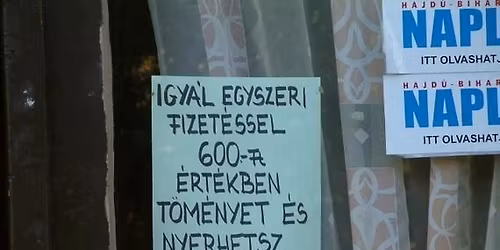 IGYÁL EGYSZERI
FIZETÉSSEL
600.-Ft
ÉRTÉKBEN
TÖMÉNYET ÉS
NYERHETSZ
HAJDÚ-BIHAR
NAPL
ITT OLVASHAT
HAJDÚ-BIHAR
NAPL
ITT OLVASHAT